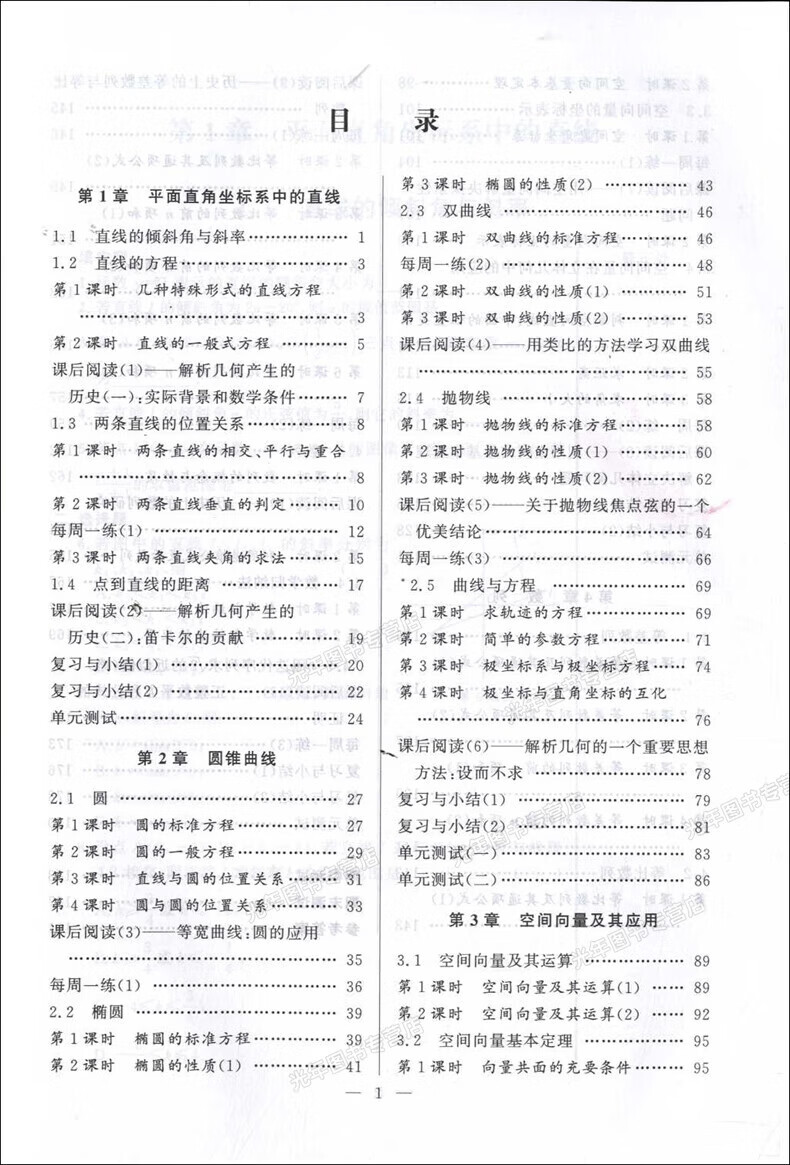 目 录
第1章 平面直角坐标系中的直线
1.1 直线的倾斜角与斜率 1
1.2 直线的方程 3
第1课时 几种特殊形式的直线方程
3
第2课时 直线的一般式方程 5
课后阅读(1)——解析几何产生的
历史(一):实际背景和数学条件 7
1.3 两条直线的位置关系 8
第1课时 两条直线的相交、平行与重合
8
第2课时 两条直线垂直的判定 10
每周一练(1) 12
第3课时 两条直线夹角的求法 15
1.4 点到直线的距离 17
课后阅读(2)——解析几何产生的
历史(二):笛卡尔的贡献 19
复习与小结(1) 20
复习与小结(2) 22
单元测试 24
第2章 圆锥曲线
2.1 圆 27
第1课时 圆的标准方程 27
第2课时 圆的一般方程 29
第3课时 直线与圆的位置关系 31
第4课时 圆与圆的位置关系 33
课后阅读(3)——等宽曲线:圆的应用
35
每周一练(1) 36
2.2 椭圆 39
第1课时 椭圆的标准方程 39
第2课时 椭圆的性质(1) 41
第3课时 椭圆的性质(2) 43
2.3 双曲线 46
第1课时 双曲线的标准方程 46
每周一练(2) 48
第2课时 双曲线的性质(1) 51
第3课时 双曲线的性质(2) 53
课后阅读(4)——用类比的方法学习双曲线
55
2.4 抛物线 58
第1课时 抛物线的标准方程 58
第2课时 抛物线的性质(1) 60
第3课时 抛物线的性质(2) 62
课后阅读(5)——关于抛物线焦点弦的一个
优美结论 64
每周一练(3) 66
*2.5 曲线与方程 69
第1课时 求轨迹的方程 69
第2课时 简单的参数方程 71
第3课时 极坐标系与极坐标方程 74
第4课时 极坐标与直角坐标的互化
76
课后阅读(6)——解析几何的一个重要思想
方法:设而不求 78
复习与小结(1) 79
复习与小结(2) 81
单元测试(一) 83
单元测试(二) 86
第3章 空间向量及其应用
3.1 空间向量及其运算 89
第1课时 空间向量及其运算(1) 89
第2课时 空间向量及其运算(2) 92
3.2 空间向量基本定理 95
第1课时 向量共面的充要条件 95
— 1 —
光年图书专营店
光年图书专营店
光年图书专营店
光年图书专营店
光年图书专营店
光年图书专营店